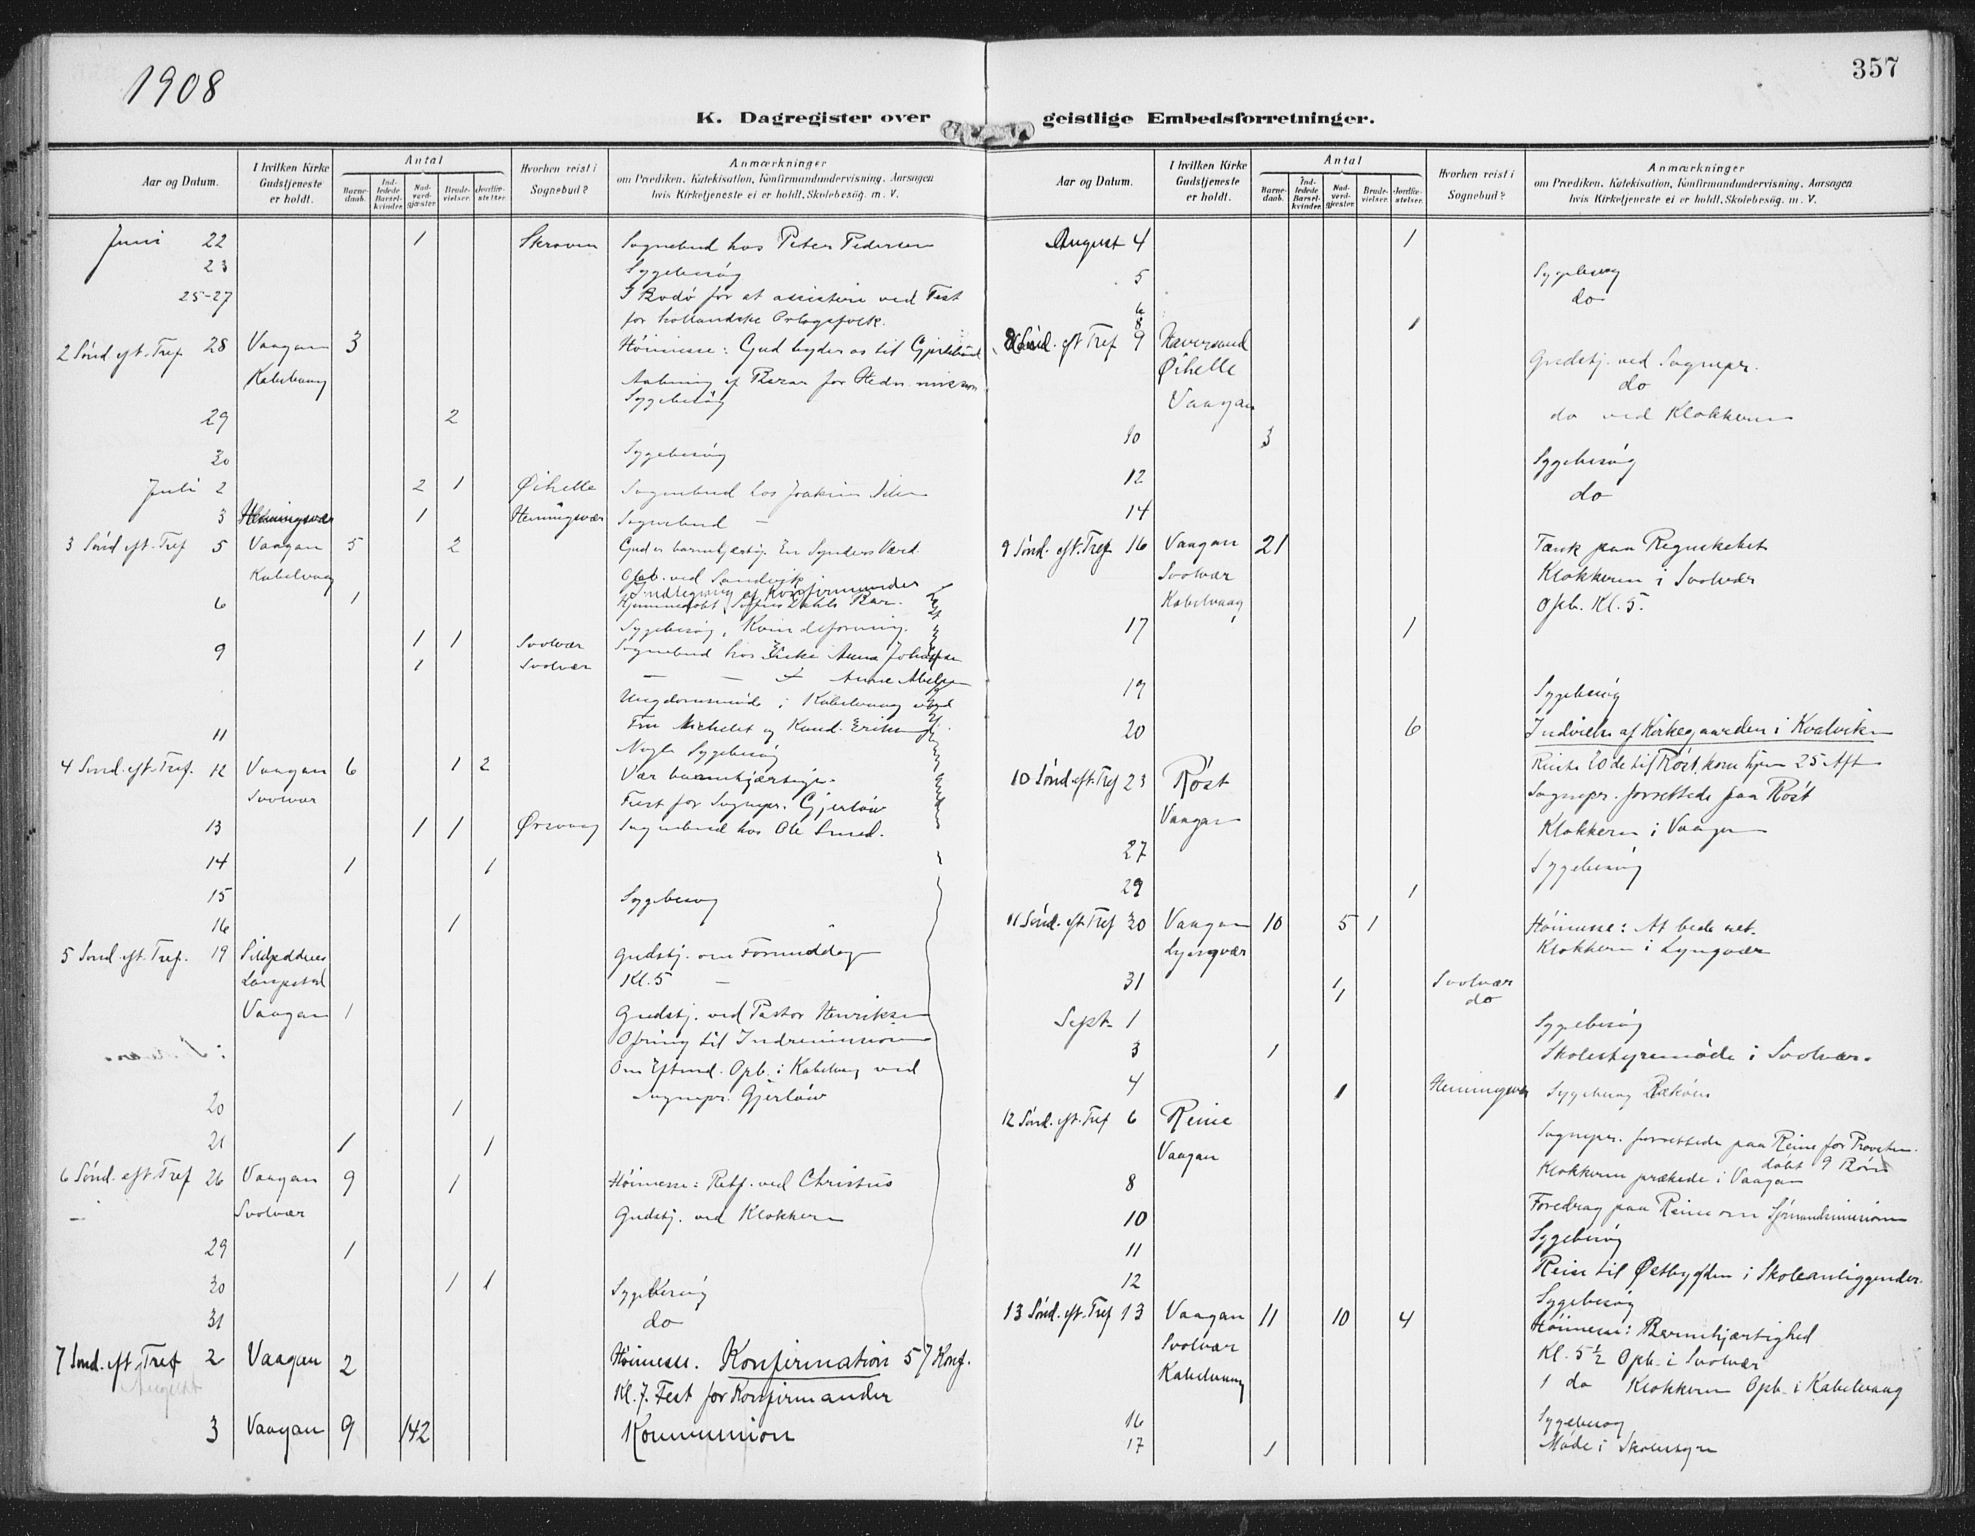 1908
357
K. Dagregister over
geistlige Embedsforretninger.
Aar og Datum.
I hvilken Kirke Gudstjeneste er holdt.
Antal
Barnedaab.
Indledede Barselkvinder.
Nadverdgjæster
Brudevielser.
Jordfæstelser.
Hvorhen reist i Sognebud?
Anmærkninger
om Prædiken, Katekisation, Konfirmandundervisning, Aarsagen
hvis Kirketjeneste ei er holdt, Skolebesøg. m. V.
Juni 22 1 Skroven Sognebud hos Peter Pedersen
23 Sygebesøg
25-27 I Bodø for at assistere ved Fest
for hollandske Orlogsfolk.
2 Sønd. eft. Tref 28 Vaagan 3 Høimesse: Gud byder os til
Kabelvaag Aabning af Bazar for Hedn. mission
Sygebesøg
29 2
30 Sygebesøg
Juli 2 2 1 Øihelle Sognebud hos Joakim
3 Henningsvær 1 Henningsvær Sognebud —
3 Sønd eft. Tref 5 Vaagan 5 2 Gud er barmhjertig. En Synders Værd
Kabelvaag Opb. ved Sandvik
Indlegning af Konfirmander
6 1 Hjemmedøbt
Sygebesøg, Kvindeforening.
9 1 1 Svolvær Sognebud hos Anna
1 Svolvær — — Anne
Ungdomsmøde i Kabelvaag ved
Fru Michelet og Kand. Eriksen
11 Nogle Sygebesøg
4 Sønd. eft. Tref. 12 Vaagan 6 1 2 Vær barmhjærtige.
Svolvær Fest for Sognepr. Gjerløw
13 1 1 Ørsvaag Sognebud hos Ole
14 1 1
15 Sygebesøg
16 1
5 Sønd eft. Tref. 19 Gudstj. om Formiddag
Kl. 5 —
Vaagan 1 Gudstj. ved Pastor Henriksen
Ofring til Indremissionen
Om Eftmd. Opb. i Kabelvaag ved
Sognepr. Gjerløw
20 1
21 1 1
6 Sønd. eft. Tref 26 Vaagan 9 1 Høimesse: Retf. ved Christus
— Svolvær Gudstj. ved Klokkeren
29 1
30 1 1 Sygebesøg
31 do
7 Sønd. eft. Tref 2 Vaagan 2 Høimesse. Konfirmation 57 Konf.
August
Kl. 7. Fest for Konfirmander
3 Vaagan 9 142 Kommunion
Aar og Datum.
I hvilken Kirke Gudstjeneste er holdt.
Antal
Barnedaab.
Indledede Barselkvinder.
Nadverdgjæster
Brudevielser.
Jordfæstelser.
Hvorhen reist i Sognebud?
Anmærkninger
om Prædiken, Katekisation, Konfirmandundervisning, Aarsagen
hvis Kirketjeneste ei er holdt, Skolebesøg. m. V.
August 4 1
5 Sygebesøg
6 do
8 1
8 Sønd. eft Tref 9 Haversand Gudstj. ved Sognepr.
Øihelle do
Vaagan do ved Klokkeren
10 3
12 Sygebesøg
14 do
9 Sønd. eft. Tref 16 Vaagan 21 Tænk paa Regnskabet
Svolvær Klokkeren i Svolvær
Kabelvaag Opb. Kl. 5.
17 1
19 Sygebesøg
20 6 Indvielse af Kirkegaarden i Kvalvik
10 Sønd. eft. Tref 23 Røst Reiste 20de til Røst, kom hjem 25 Aft
Sognepr. forrettede paa Røst
Vaagan Klokkeren i Vaagan
27 Sygebesøg
29 1
11 Sønd. eft Tref 30 Vaagan 10 5 1 Høimesse: At bede ret.
Lyngvær Klokkeren i Lyngvær
31 1 Svolvær
1 do
Sept. 1 Sygebesøg
3 1 Skolestyremøde i Svolvær.
4 1 Henningsvær Sygebesøg
12 Sønd. eft. Tref 6 Reine Sognepr. forrettede paa Reine for Provsten.
døbt 9 Børn
Vaagan Klokkeren prækede i Vaagan
8 Foredrag paa Reine om Sjømandsmissionen
10 Sygebesøg
11 Reise til Østbygden i Skoleanliggender.
12 Sygebesøg
13 Sønd. eft. Tref 13 Vaagan 11 10 4 Høimesse: Barmhjærtighed
Svolvær Kl. 5½ Opb. i Svolvær
Kabelvaag 1 do Klokkeren Opb. i Kabelvaag
16 Sygebesøg
17 1 Møde i Skolestyre